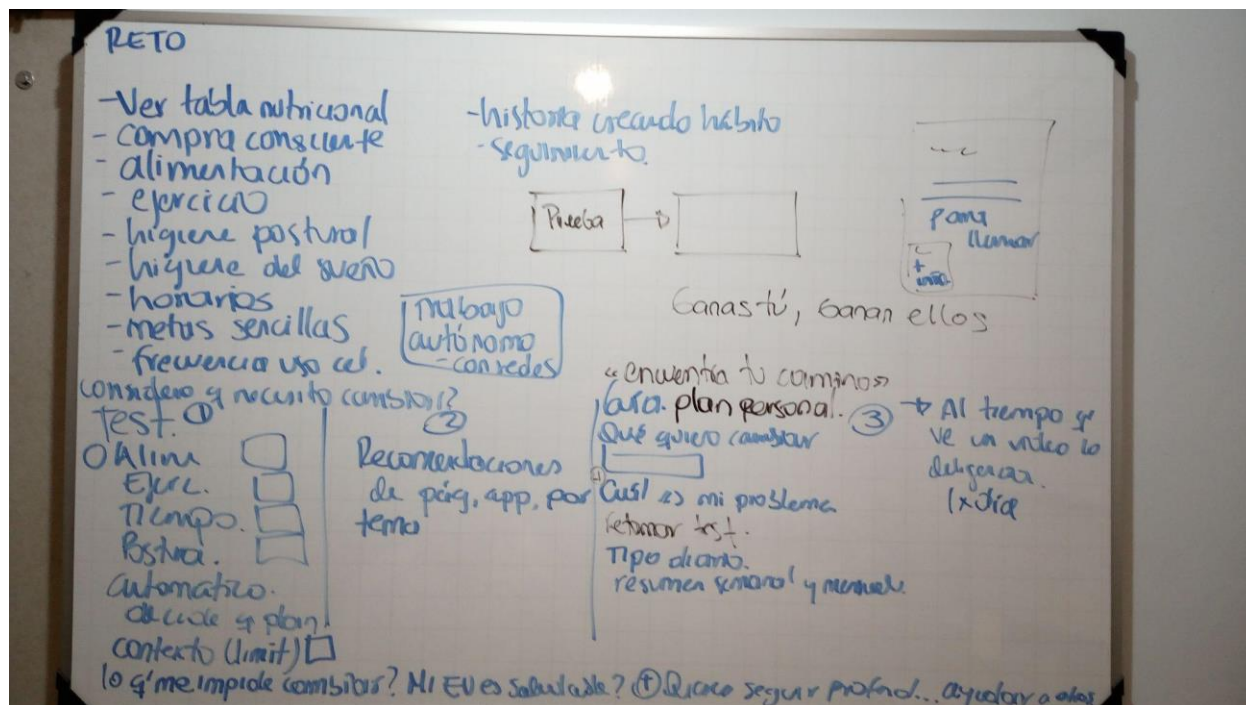 RETO
-Ver tabla nutricional
- compra consciente
- alimentación
- ejercicio
- higiene postural
- higiene del sueño
- horarios
- metas sencillas
- frecuencia uso cel.
-historia creando hábito
- seguimiento.
Prueba
para
llamar
+
Ganas tú, Ganan ellos
Trabajo
autónomo
- con redes
considero q necesito cambiar?
Test. ①
Alim
Ejerc.
Tiempo.
Postura.
automatico.
decide q plan
contexto (limit)
②
Recomendaciones
de pág, app, por
tema
"encuentra tu camino"
plan personal. ③
Qué quiero cambiar
Cuál es mi problema
retomar test.
Tipo diario.
resumen semanal y mensual.
→ Al tiempo q'
ve un video lo
1xdía
lo q' me impide cambiar? Mi EV es saludable? + Quiero seguir profund... ayudar a otros